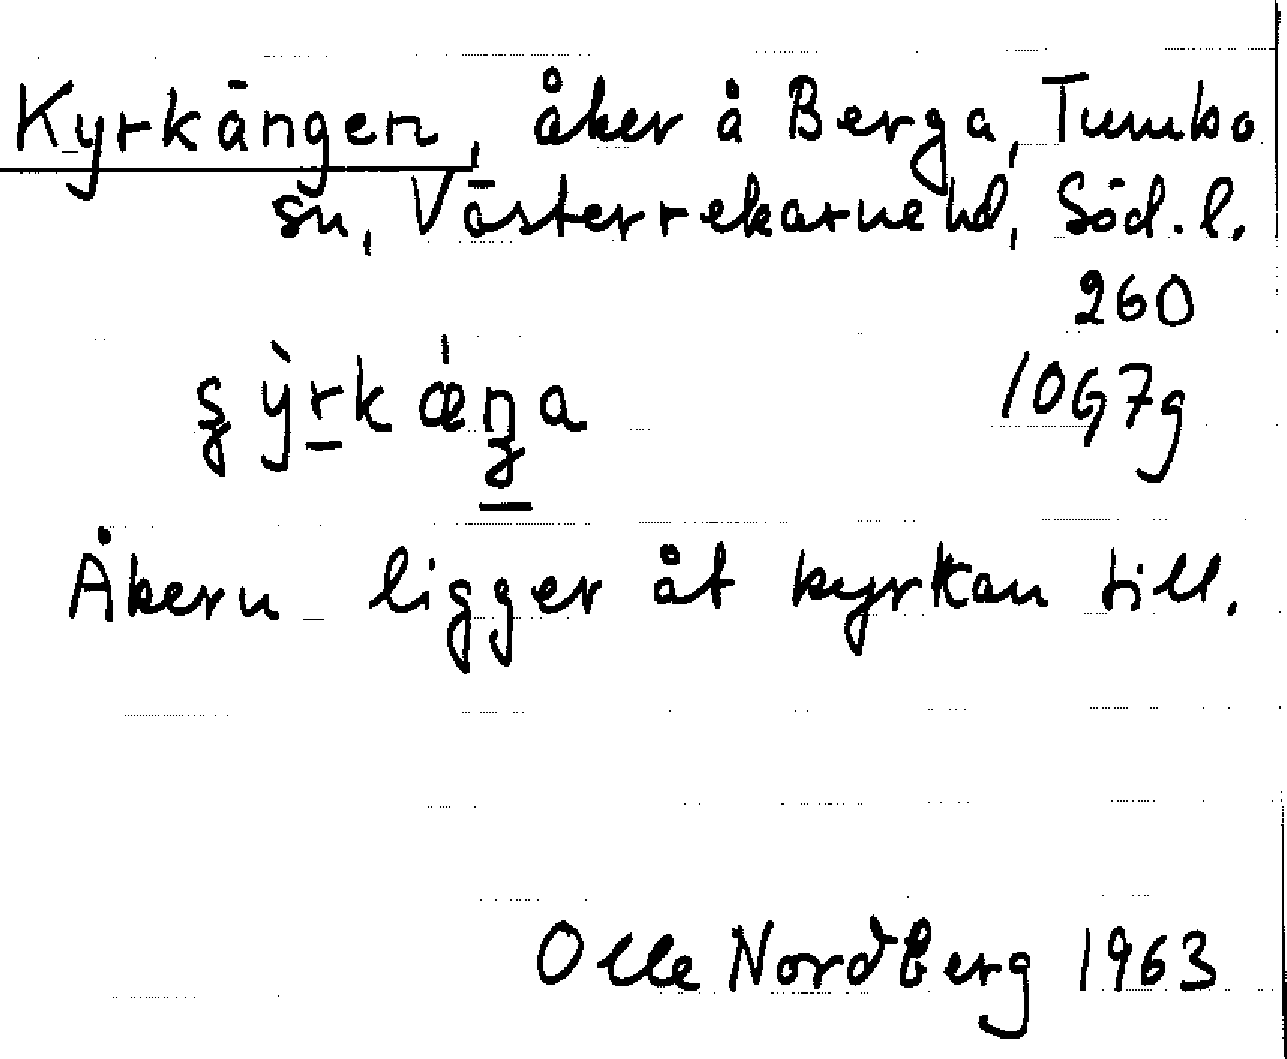 Kyrkängen, åker å Berga, Tumbo
sn, Västerrekarne hd, Söd. l.
260
ȿỳrkǽŋa
10G7g
Åkern ligger åt kyrkan till.
Olle Nordberg 1963